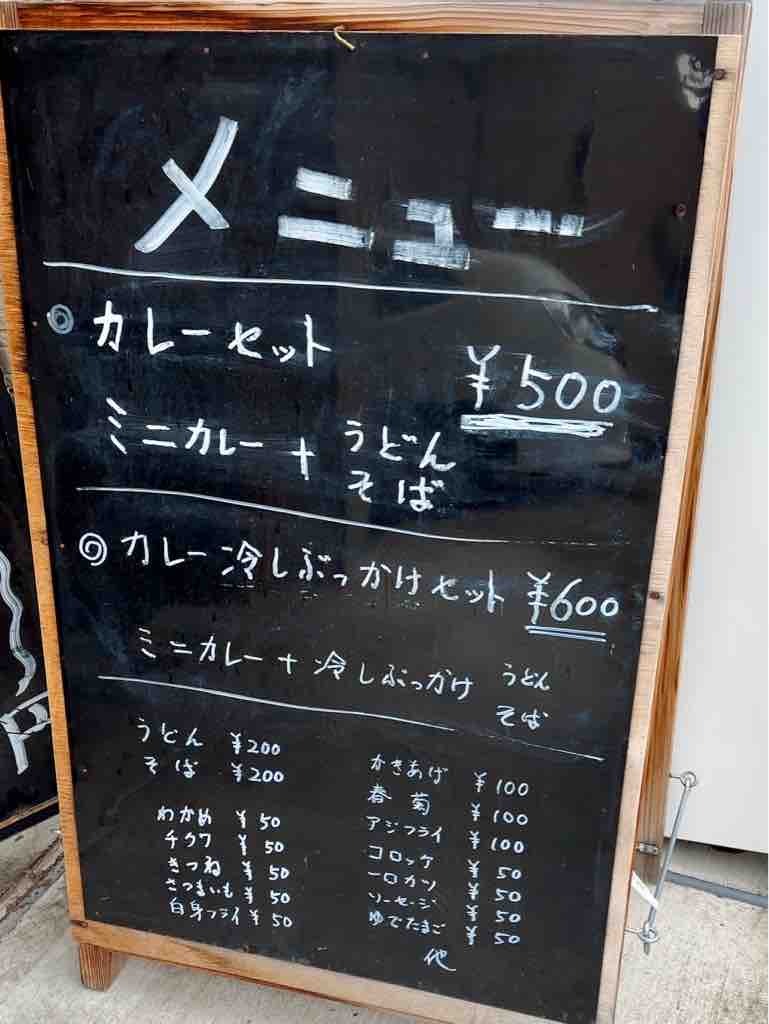 メニュー
◎ カレーセット ¥500
ミニカレー + うどん
そば
◎ カレー冷しぶっかけセット ¥600
ミニカレー + 冷しぶっかけ うどん
そば
うどん ¥200
そば ¥200
わかめ ¥50
チクワ ¥50
きつね ¥50
さつまいも ¥50
白身フライ ¥50
かきあげ ¥100
春菊 ¥100
アジフライ ¥100
コロッケ ¥50
一口カツ ¥50
ソーセージ ¥50
ゆでたまご ¥50
他